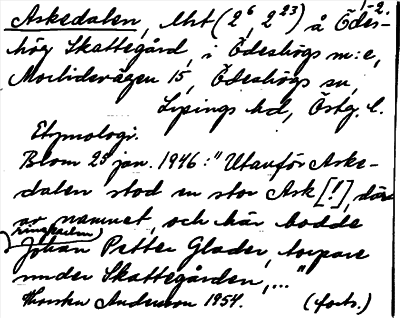 1-2.
Askedalen, lht (2⁶ 2²³) å Ödes-
hög Skattegård, i Ödeshögs m:e,
Morlidevägen 15, Ödeshögs sn,
Lysings hd, Östg. l.
Etymologi.
Blom 25 jan. 1946: "Utanför Aske-
dalen stod en stor Ask [!], därav
namnet, och här bodde
ringkarlen
Johan Petter Glader, torpare
under Skattegården,..."
Thorsten Andersson 1954. (forts.)